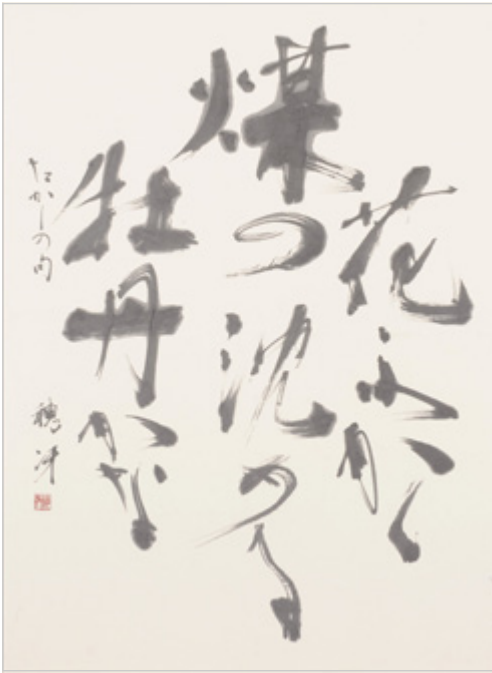 花ふかく
煤の沈める
牡丹かな
たかしの句